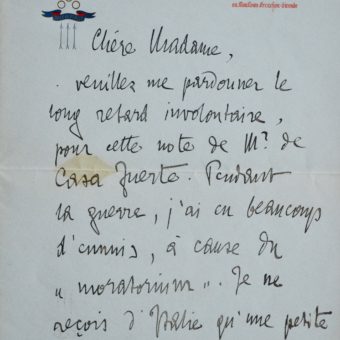 au Moulleau Arcachon-Gironde
Chère Madame,
veuillez me pardonner le
long retard involontaire,
pour cette note de Mr. de
Casa Fuerte. Pendant
la guerre, j'ai eu beaucoup
d'ennuis, à cause du
„ moratorium ". Je ne
reçois d'Italie qu'une petite